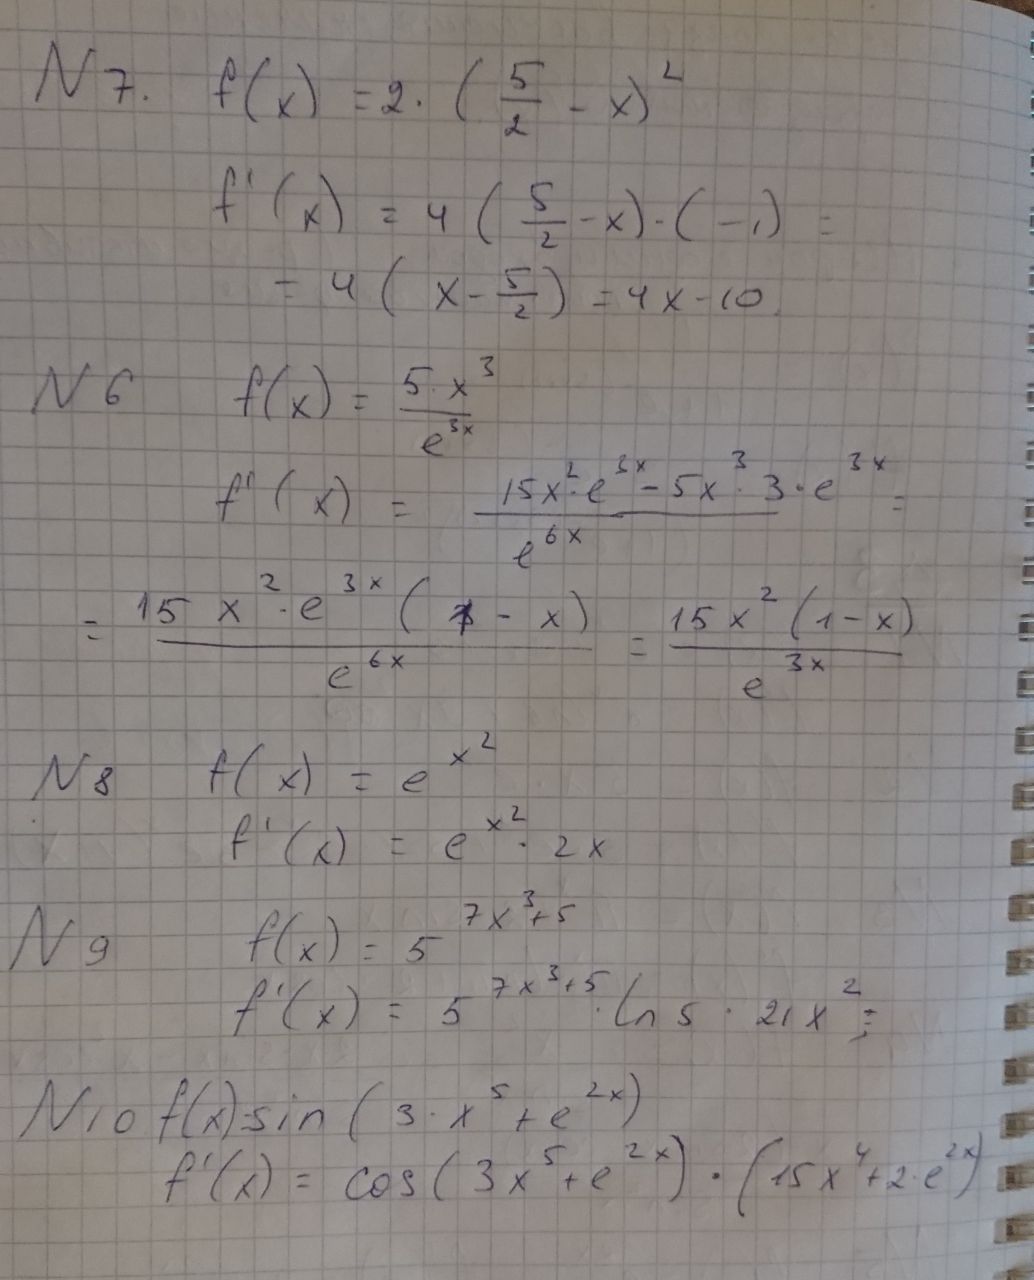 N 7. f(x) = 2 · (5/2 - x)²
f'(x) = 4 (5/2 - x) · (-1) =
= 4 (x - 5/2) = 4x - 10.
N 6 f(x) = 5·x³/e^(3x)
f'(x) = (15x²·e^(3x) - 5x³·3·e^(3x))/e^(6x) =
= 15x²·e^(3x)(1 - x)/e^(6x) = 15x²(1-x)/e^(3x)
N 8 f(x) = e^(x²)
f'(x) = e^(x²) · 2x
N 9 f(x) = 5^(7x³+5)
f'(x) = 5^(7x³+5) · ln 5 · 21x²;
N 10 f(x) = sin (3·x⁵ + e^(2x))
f'(x) = cos (3x⁵ + e^(2x)) · (15x⁴ + 2·e^(2x))